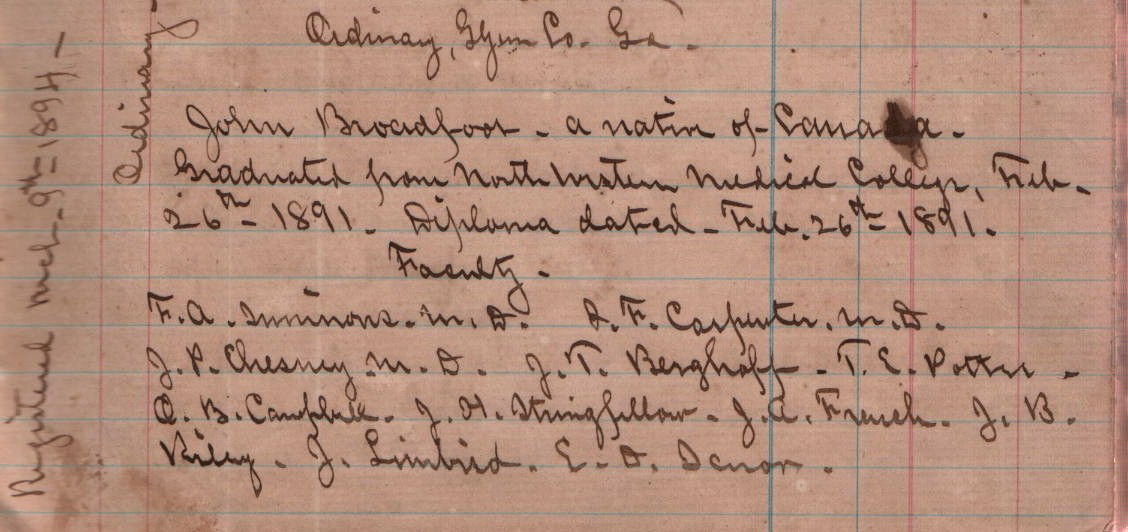 Ordinary, Glynn Co. Ga.
John Broadfoot - a native of Canada.
Graduated from North Western Medical College, Feb.
26th - 1891. Diploma dated - Feb. 26th - 1891.
Faculty.
F. A. Simmons. M. D. D. F. Carpenter. M. D.
J. P. Chesney M. D. J. T. Berghoff. T. E. Potter.
O. B. Campbell. J. H. Stringfellow. J. A. French. J. B.
Riley. J. Limbird. E. D.
Registered Mch. 9th - 1894 -
Ordinary